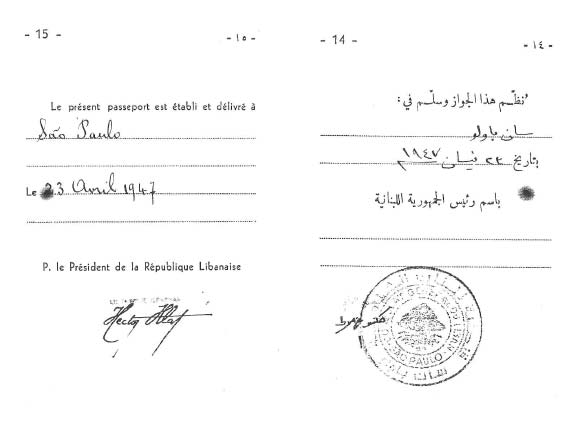 - 15 -
- ١٥ -
Le présent passeport est établi et délivré à
São Paulo
Le 23 Avril 1947
P. le Président de la République Libanaise
- 14 -
- ١٤ -
نظّم هذا الجواز وسلّم في :
سان باولو
بتاريخ ٢٣ نيسان ١٩٤٧
باسم رئيس الجمهورية اللبنانية
SÃO PAULO